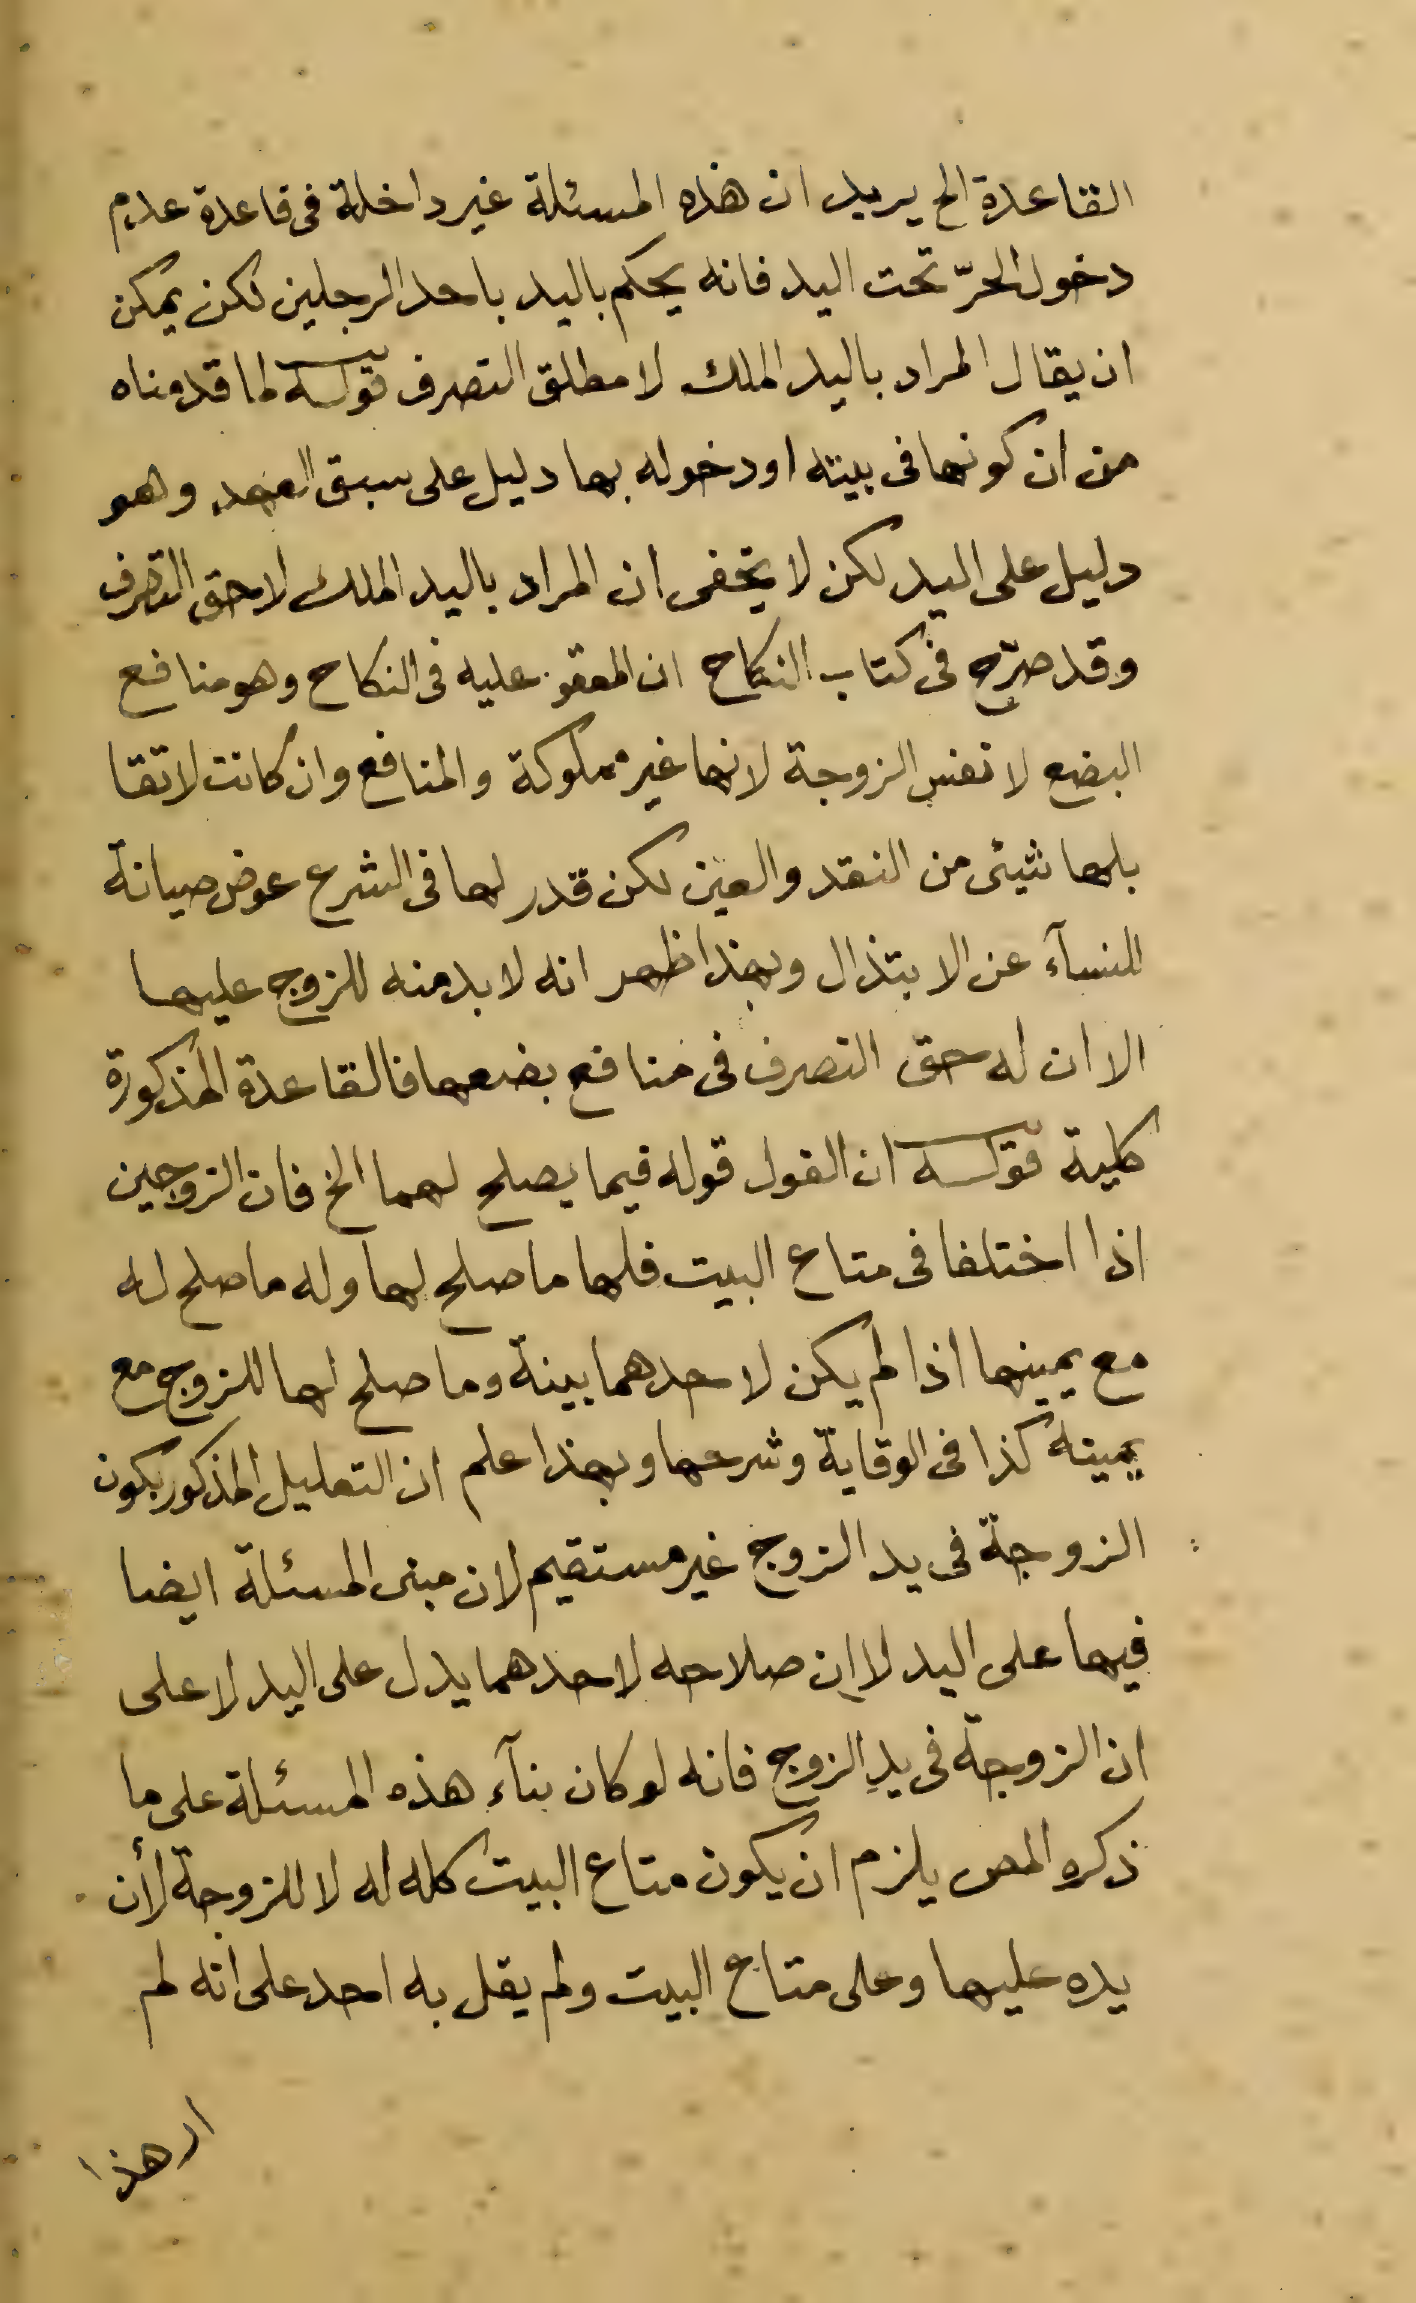 القاعدة الخ يريد ان هذه المسئلة غير داخلة فى قاعدة عدم
دخول الحرّ تحت اليد فانه يحكم باليد باحد الرجلين لكن يمكن
ان يقال المراد باليد الملك لا مطلق التصرف قوله لما قدمناه
من ان كونها فى بيته او دخوله بها دليل على سبق العهد وهو
دليل على اليد لكن لا يخفى ان المراد باليد الملك لا حق التصرف
وقد صرّح فى كتاب النكاح ان المعقو عليه فى النكاح وهو منافع
البضع لا نفس الزوجة لانها غير مملوكة والمنافع وان كانت لا تقا
بلها شيئى من النقد والعين لكن قدر لها فى الشرع عوض صيانة
للنسآء عن الابتذال وبهذا ظهر انه لا بد منه للزوج عليها
الا ان له حق التصرف فى منافع بضعها فالقاعدة المذكورة
كلية قوله ان القول قوله فيما يصلح لهما الخ فان الزوجين
اذا اختلفا فى متاع البيت فلها ما صلح لها وله ما صلح له
مع يمينها اذا لم يكن لاحدهما بينة وما صلح لها للزوج مع
يمينه كذا فى الوقاية وشرحها وبهذا علم ان التعليل المذكور بكون
الزوجة فى يد الزوج غير مستقيم لان مبنى المسئلة ايضا
فيها على اليد لا ان صلاحه لاحدهما يدل على اليد لا على
ان الزوجة فى يد الزوج فانه لو كان بنآء هذه المسئلة على ما
ذكره المص يلزم ان يكون متاع البيت كله له لا للزوجة لأن
يده عليها وعلى متاع البيت ولم يقل به احد على انه لم
هذا